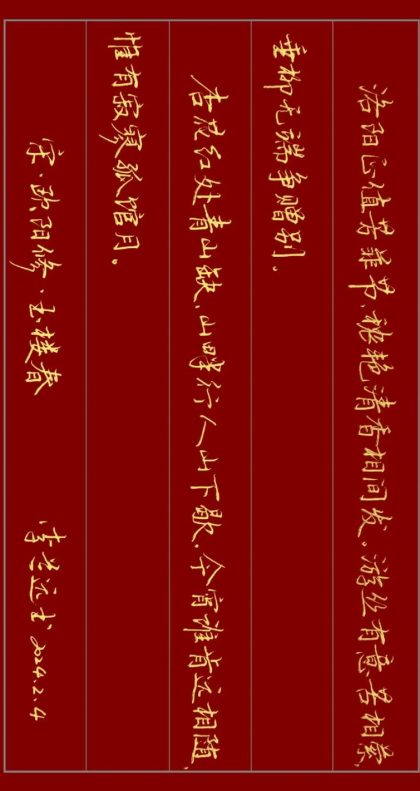 洛阳正值芳菲节,秾艳清香相间发。游丝有意苦相萦,
垂柳无端争赠别.
杏花红处青山缺.山畔行人山下歇.今宵谁肯远相随,
惟有寂寞孤馆月。
宋·欧阳修·玉楼春 李兰远书 2024.2.4